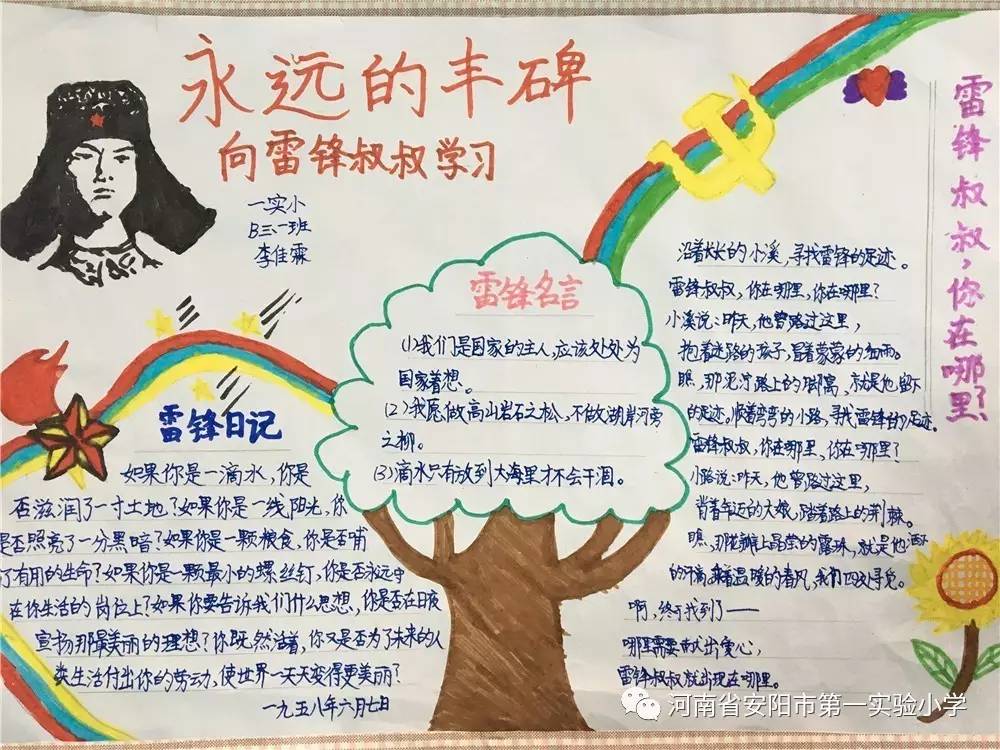 永远的丰碑
向雷锋叔叔学习
一实小
B三.一班
李佳霖
雷锋日记
如果你是一滴水，你是
否滋润了一寸土地？如果你是一线阳光，你
是否照亮了一分黑暗？如果你是一颗粮食，你是否哺
了有用的生命？如果你是一颗最小的螺丝钉，你是否永远守
在你生活的岗位上？如果你要告诉我们什么思想，你是否在日夜
宣扬那最美丽的理想？你既然活着，你又是否为了未来的人
类生活付出你的劳动，使世界一天天变得更美丽？
一九五八年六月七日
雷锋名言
(1)我们是国家的主人，应该处处为
国家着想。
(2)我愿做高山岩石之松，不做湖岸河旁
之柳。
(3)滴水只有放到大海里才不会干涸。
雷锋叔叔，你在哪里？
沿着长长的小溪，寻找雷锋的足迹。
雷锋叔叔，你在哪里，你在哪里？
小溪说：昨天，他曾路过这里，
抱着迷路的孩子，冒着蒙蒙的细雨。
瞧，那泥泞路上的脚窝，就是他留下
的足迹。顺着弯弯的小路，寻找雷锋的足迹。
雷锋叔叔，你在哪里，你在哪里？
小路说：昨天，他曾路过这里，
背着年迈的大娘，踏着路上的荆棘。
瞧，那花瓣上晶莹的露珠，就是他洒下
的汗滴。乘着温暖的春风，我们四处寻觅。
啊，终于找到了——
哪里需要献出爱心，
雷锋叔叔就出现在哪里。
河南省安阳市第一实验小学